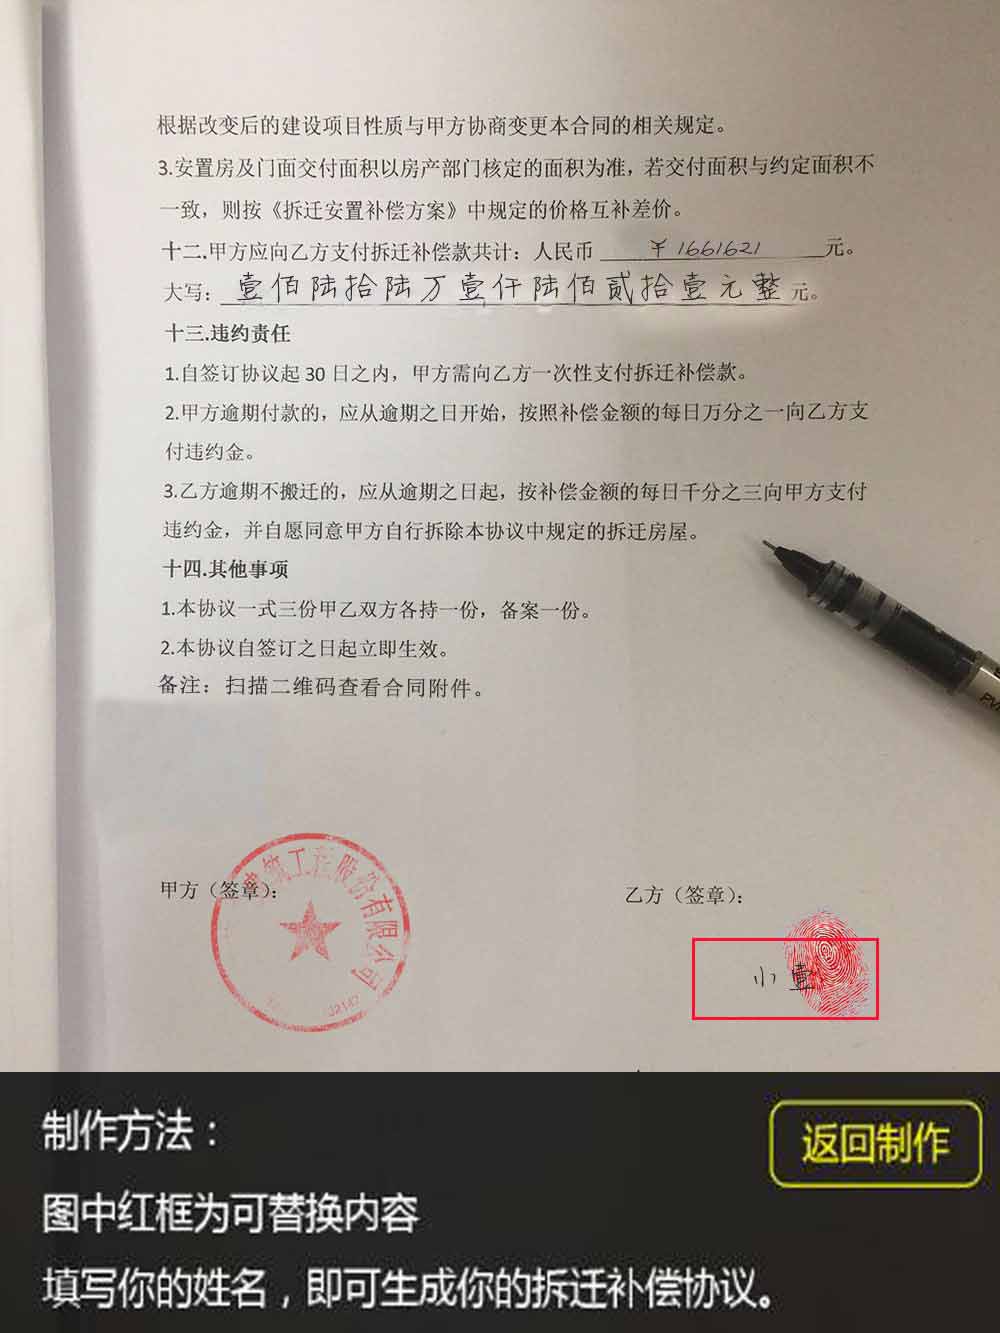 根据改变后的建设项目性质与甲方协商变更本合同的相关规定。
3.安置房及门面交付面积以房产部门核定的面积为准，若交付面积与约定面积不
一致，则按《拆迁安置补偿方案》中规定的价格互补差价。
十二.甲方应向乙方支付拆迁补偿款共计：人民币 ￥1661621 元。
大写：壹佰陆拾陆万壹仟陆佰贰拾壹元整元。
十三.违约责任
1.自签订协议起 30 日之内，甲方需向乙方一次性支付拆迁补偿款。
2.甲方逾期付款的，应从逾期之日开始，按照补偿金额的每日万分之一向乙方支
付违约金。
3.乙方逾期不搬迁的，应从逾期之日起，按补偿金额的每日千分之三向甲方支付
违约金，并自愿同意甲方自行拆除本协议中规定的拆迁房屋。
十四.其他事项
1.本协议一式三份甲乙双方各持一份，备案一份。
2.本协议自签订之日起立即生效。
备注：扫描二维码查看合同附件。
甲方（签章）：
筑工程股份有限公司
32147
乙方（签章）：
小壹
制作方法：
返回制作
图中红框为可替换内容
填写你的姓名，即可生成你的拆迁补偿协议。